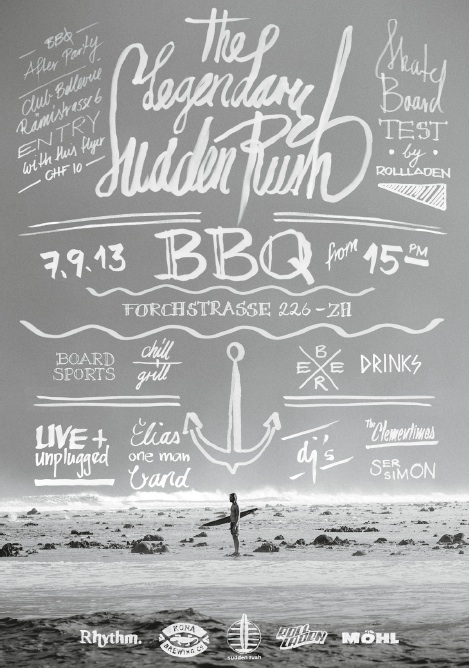 BBQ
After Party
Club Bellevue
Rämistrasse 6
ENTRY
with this flyer
CHF 10
the
Legendary
Sudden Rush
Skate
Board
TEST
by
ROLLLADEN
7.9.13
BBQ
from 15 PM
FORCHSTRASSE 226-ZH
BOARD
SPORTS
chill
grill
BEER
DRINKS
LIVE +
unplugged
Elias
one man
band
dj's
The Clementimes
SER
SIMON
Rhythm.
KONA
BREWING CO
sudden rush
ROLL
LADEN
MÖHL